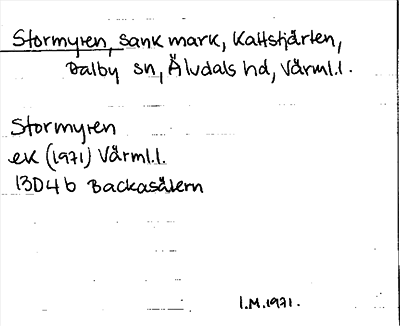 Stormyren, sank mark, Kattstjärten,
Dalby sn, Älvdals hd, Värml.l.
Stormyren
ek (1971) Värml.l.
13D4b Backasätern
I.M.1971.